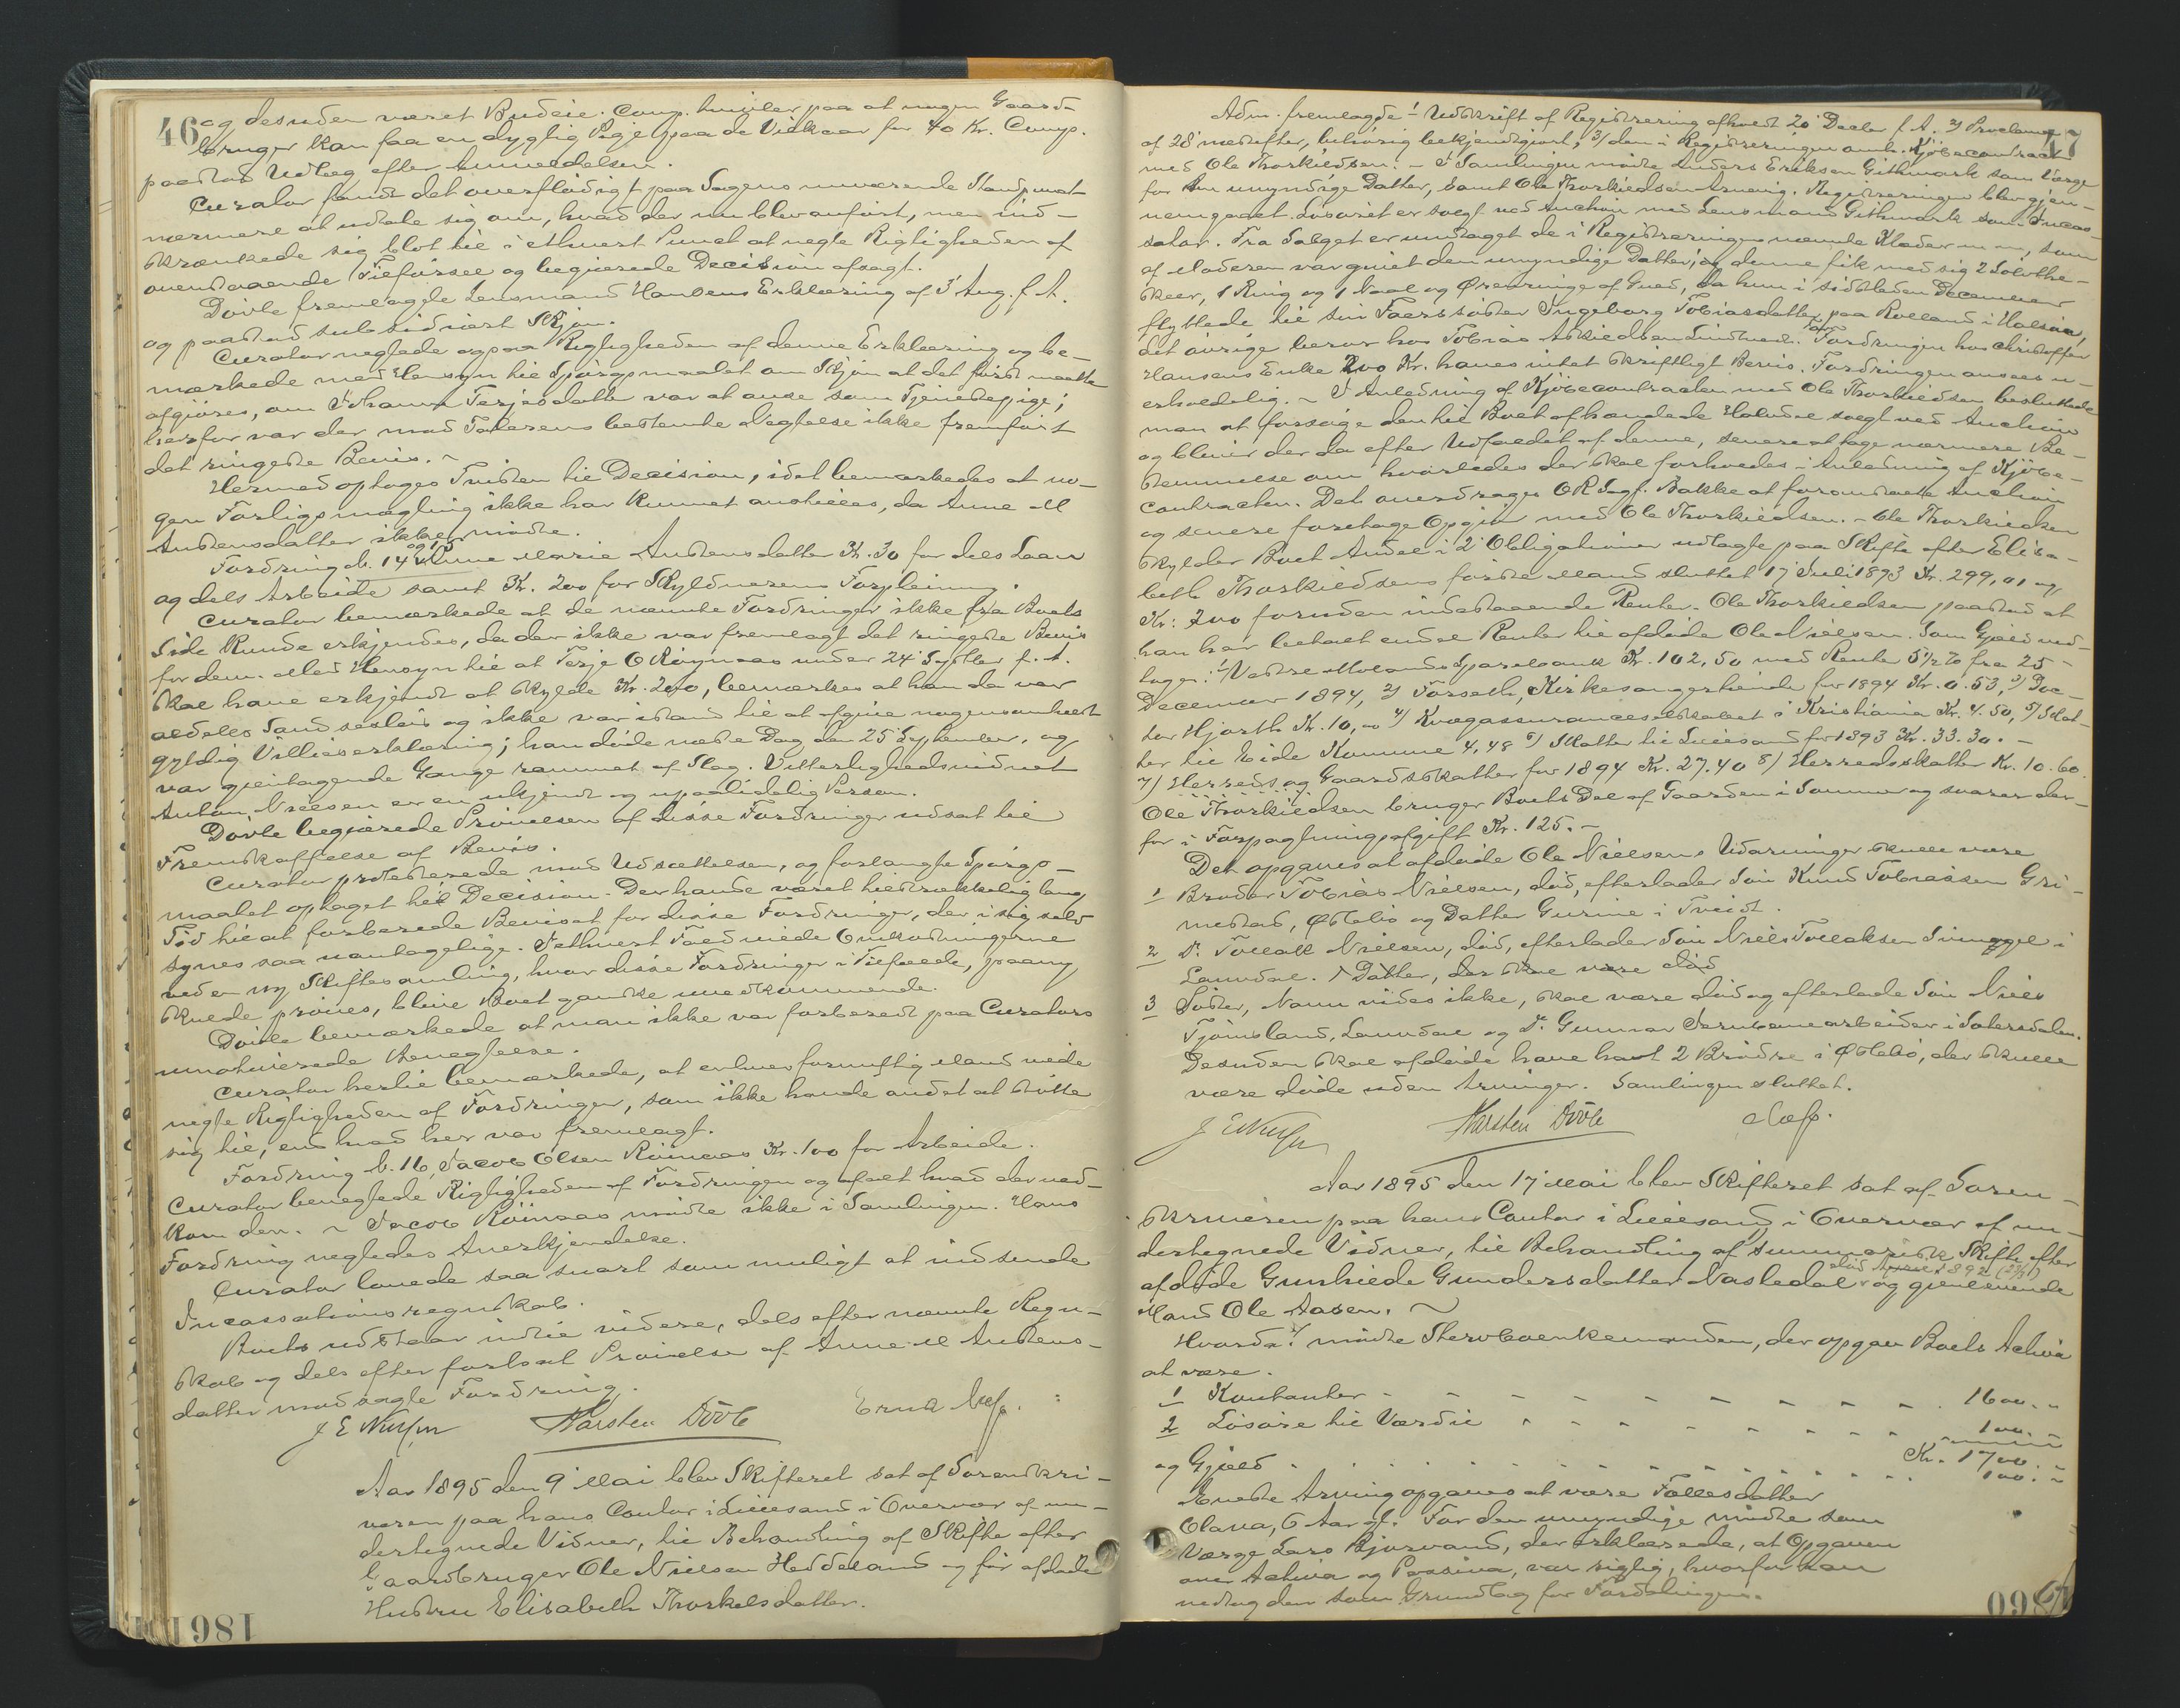 46
og desuden været Budeie. Comp. hensviser paa at nogen Gaard-
bruger kan faa en dygtig Pige paa de Vidkaar for 40 Kr. Comp.
paastod Udlæg efter Anmeldelsen.
Curator fandt det overflødigt paa Sagens nuværende Standpunkt
nærmere at udtale sig om, hvad der nu blev anført, men ind-
skrænkede sig blot til i ethvert Punct at negte Rigtigheden af
ovenstaaende Tilførsel og begjærede Decision afsagt.
Dövle fremlagde Lensmand Hansens Erklæring af 3 Aug. f. A.
og paastod subsidiært Skjøn.
Curator neglede ogsaa Rigtigheden af denne Erklæring og be-
mærkede med Hensyn til Spørgsmaalet om Skjøn at det først maatte
afgjøres, om Johanne Terjesdatter var at anse som Tjenestepige;
herfor var der mod Faderens bestemte Negtelse ikke fremført
det ringeste Bevis. ~
Hermed optoges Tvisten til Decision, idet bemærkedes at no-
gen Forligsmægling ikke har kunnet anstilles, da Anne M
Austensdatter ikke mødte.
Fordring No. 14 og 15 Anne Marie Austensdatter Kr. 30 for dels Laan
og dels Arbeide samt Kr. 200 for Skyldnerens Forpleining.
Curator bemærkede at de nævnte Fordringer ikke fra Boets
Side kunde erkjendes, da der ikke var fremlagt det ringeste Bevis
for dem. Med Hensyn til at Terje O Røynaas under 24 Septbr f. A.
skal have erkjendt at skylde Kr. 200, bemærkes at han da var
aldeles sandsesløs og ikke var istand til at afgive nogensomhelst
gyldig Villieserklæring; han døde næste Dag den 25 September, og
var gjentagende Gange rammet af Slag. Vitterlighedsvidnet
Anton Nielsen er en ukjendt og upaalidelig Person.
Dövle begjærede Prøvelsen af disse Fordringer udsat til
Fremskaffelse af Bevis.
Curator protesterede mod Udsættelsen, og forlangte Spørgs-
maalet optaget til Decision. Der havde været tilstrækkelig lang
Tid til at forberede Beviset for disse Fordringer, der i sig selv
synes saa uantagelige. I ethvert Fald vilde Omkostningerne
ved en ny Skiftesamling, hvor disse Fordringer i Tilfælde, paany
skulde prøves, blive Boet ganske uvedkommende.
Dövle bemærkede at man ikke var forberedt paa Curators
umotiverede Benegtelse.
Curator hertil bemærkede, at enhver fornuftig Mand vilde
negte Rigtigheden af Fordringer, som ikke havde andet at støtte
sig til, end hvad her var fremlagt.
Fordring No. 16, Jacob Olsen Röinaas Kr. 100 for Arbeide.
Curator benegtede Rigtigheden af Fordringen og afalt hvad der ved-
kom den. ~ Jacob Röinaas mødte ikke i Samlingen. Hans
Fordring negtedes Anerkjendelse.
Curator lovede saa snart som muligt at indsende
Incassationsregnskab.
Boets udstaar indtil videre, dels efter nævnte Regn-
skab og dels efter fortsat Prøvelse af Anne M Austens-
datter modsagte Fordring.
J E Nielsen Karsten Dövle
Aar 1895 den 9 Mai blev Skifteret sat af Sorenskri-
veren paa hans Contor i Lillesand i Overvær af un-
dertegnede Vidner, til Behandling af Skifte efter
Gaardbruger Ole Nielsen Heddeland og før afdøde
Hustru Elisabeth Thorkelsdatter.
1861
47
Adm. fremlagde 1) Udskrift af Registrering afholdt 20 Decbr f. A. 2) Proclama
af 28 næstefter, behørig bekjendtgjort, 3) den i Registreringen omh. Kjøbecontract
med Ole Thorkildsen. - I Samlingen mødte Anders Eriksen Githmark som Værge
for den umyndige Datter, samt Ole Thorkildsen Arvenig. Registreringen blev gjen-
nemgaaet. Løsøret er solgt ved Auction med Lensmand Githmark som Incas-
sator. Fra Salget er undtaget de i Registreringen nævnte Klæder m m, som
af Moderen var givet den umyndige Datter; og denne fik med sig 2 Sølvthe-
skeer, 1 Ring og 1 Naal og Ørenringe af Guld, da hun i sidstleden December
flyttede til sin Faers søster Ingeborg Tobiasdatter paa Rolland i Holsaa,
det øvrige beror hos Tobias Askildsen Lindtveit. For Fordringen hos Christoffer
Hansens Enke 200 Kr. haves intet skriftligt Bevis. Fordringen ansees u-
erholdelig. ~ I Anledning af Kjøbecontracten med Ole Thorkildsen besluttede
man at forsøge den til Boet afhændede Halvdel solgt ved Auction
og bliver der da efter Udfaldet af denne, senere at tage nærmere Be-
stemmelse om hvorledes der skal forholdes i Anledning af Kjøbe-
contracten. Det overdrages OR Sagf. Bakke at foranstalte Auction
og senere foretage Opgjør med Ole Thorkildsen. - Ole Thorkildsen
skylder Boet Andel i 2 Obligationer udlagte paa Skifte efter Elisa-
beth Thorkildsens første Mand sluttet 17 Juli 1893 Kr. 299,01 og
Kr. 200 foruden indestaaende Renter. Ole Thorkildsen paastod at
han har betalt endel Renter til afdøde Ole Nielsen. Som Gjæld ved-
toges: 1) Vestre Molands Sparebank Kr. 102,50 med Rente 5 1/2 % fra 25
December 1894, 2) Forseth, Kirkesangertiende for 1894 Kr. 0.53, 3) Doc-
tor Hjorth Kr. 10,00 4) Kvægassuranceselskabet i Kristiania Kr. 4.50, 5) Skat-
ter til Eide Kommune 4,48 6) Skatter til Lillesand for 1893 Kr. 33.30. -
7) Herreds og Gaardskatter for 1894 Kr. 27.40 8) Herredsskatter Kr. 10.60.
Ole Thorkildsen bruger Boets Del af Gaarden i Sommer og svarer der-
for i Forpagtningsafgift Kr. 125. -
Det opgaves at afdøde Ole Nielsens Udarvinger skulle være
1 Broder Tobias Nielsen, død, efterlader Søn Knud Tobiassen Gri-
mestad, Øiebø og Datter Gurine i Tveit.
2 Do. Tollak Nielsen, død, efterlader Søn Niels Tollaksen i
Laundal. 1 Datter, der skal være død
3 Søster, Navn vides ikke, skal være død og efterlade Søn Niels
Tjomsland, Laundal og Do. Gunnar Jernbanearbeider i Setersdalen.
Desuden skal afdøde have havt 2 Brødre i Øiebø, der skulle
være døde uden Arvinger. Samlingen sluttet.
J E Nielsen Karsten Dövle
Aar 1895 den 17 Mai blev Skifteret sat af Soren-
skriveren paa hans Contor i Lillesand i Overvær af un-
dertegnede Vidner, til Behandling af summarisk Skifte efter
afdøde Gunhilde Gundersdatter Nasledal og gjenlevende
Mand Ole Aasen. ~
Hvorda: mødte Stervboenkemanden, der opgav Boets Activa
at være.
1 Kontanter - - - - 1600. "
2 Løsøre til Værdi - - - - 100. "
Kr. 1700. "
og Gjæld - - - - 100. "
Eneste Arving opgaves at være Fællesdatter
Olava, 6 Aar gl. For den umyndige mødte som
Værge Lars Bjorvand, der erklærede, at Opgaven
over Activa og Passiva, var rigtig, hvorfor han
vedtog den som Grundlag for Fordelingen.